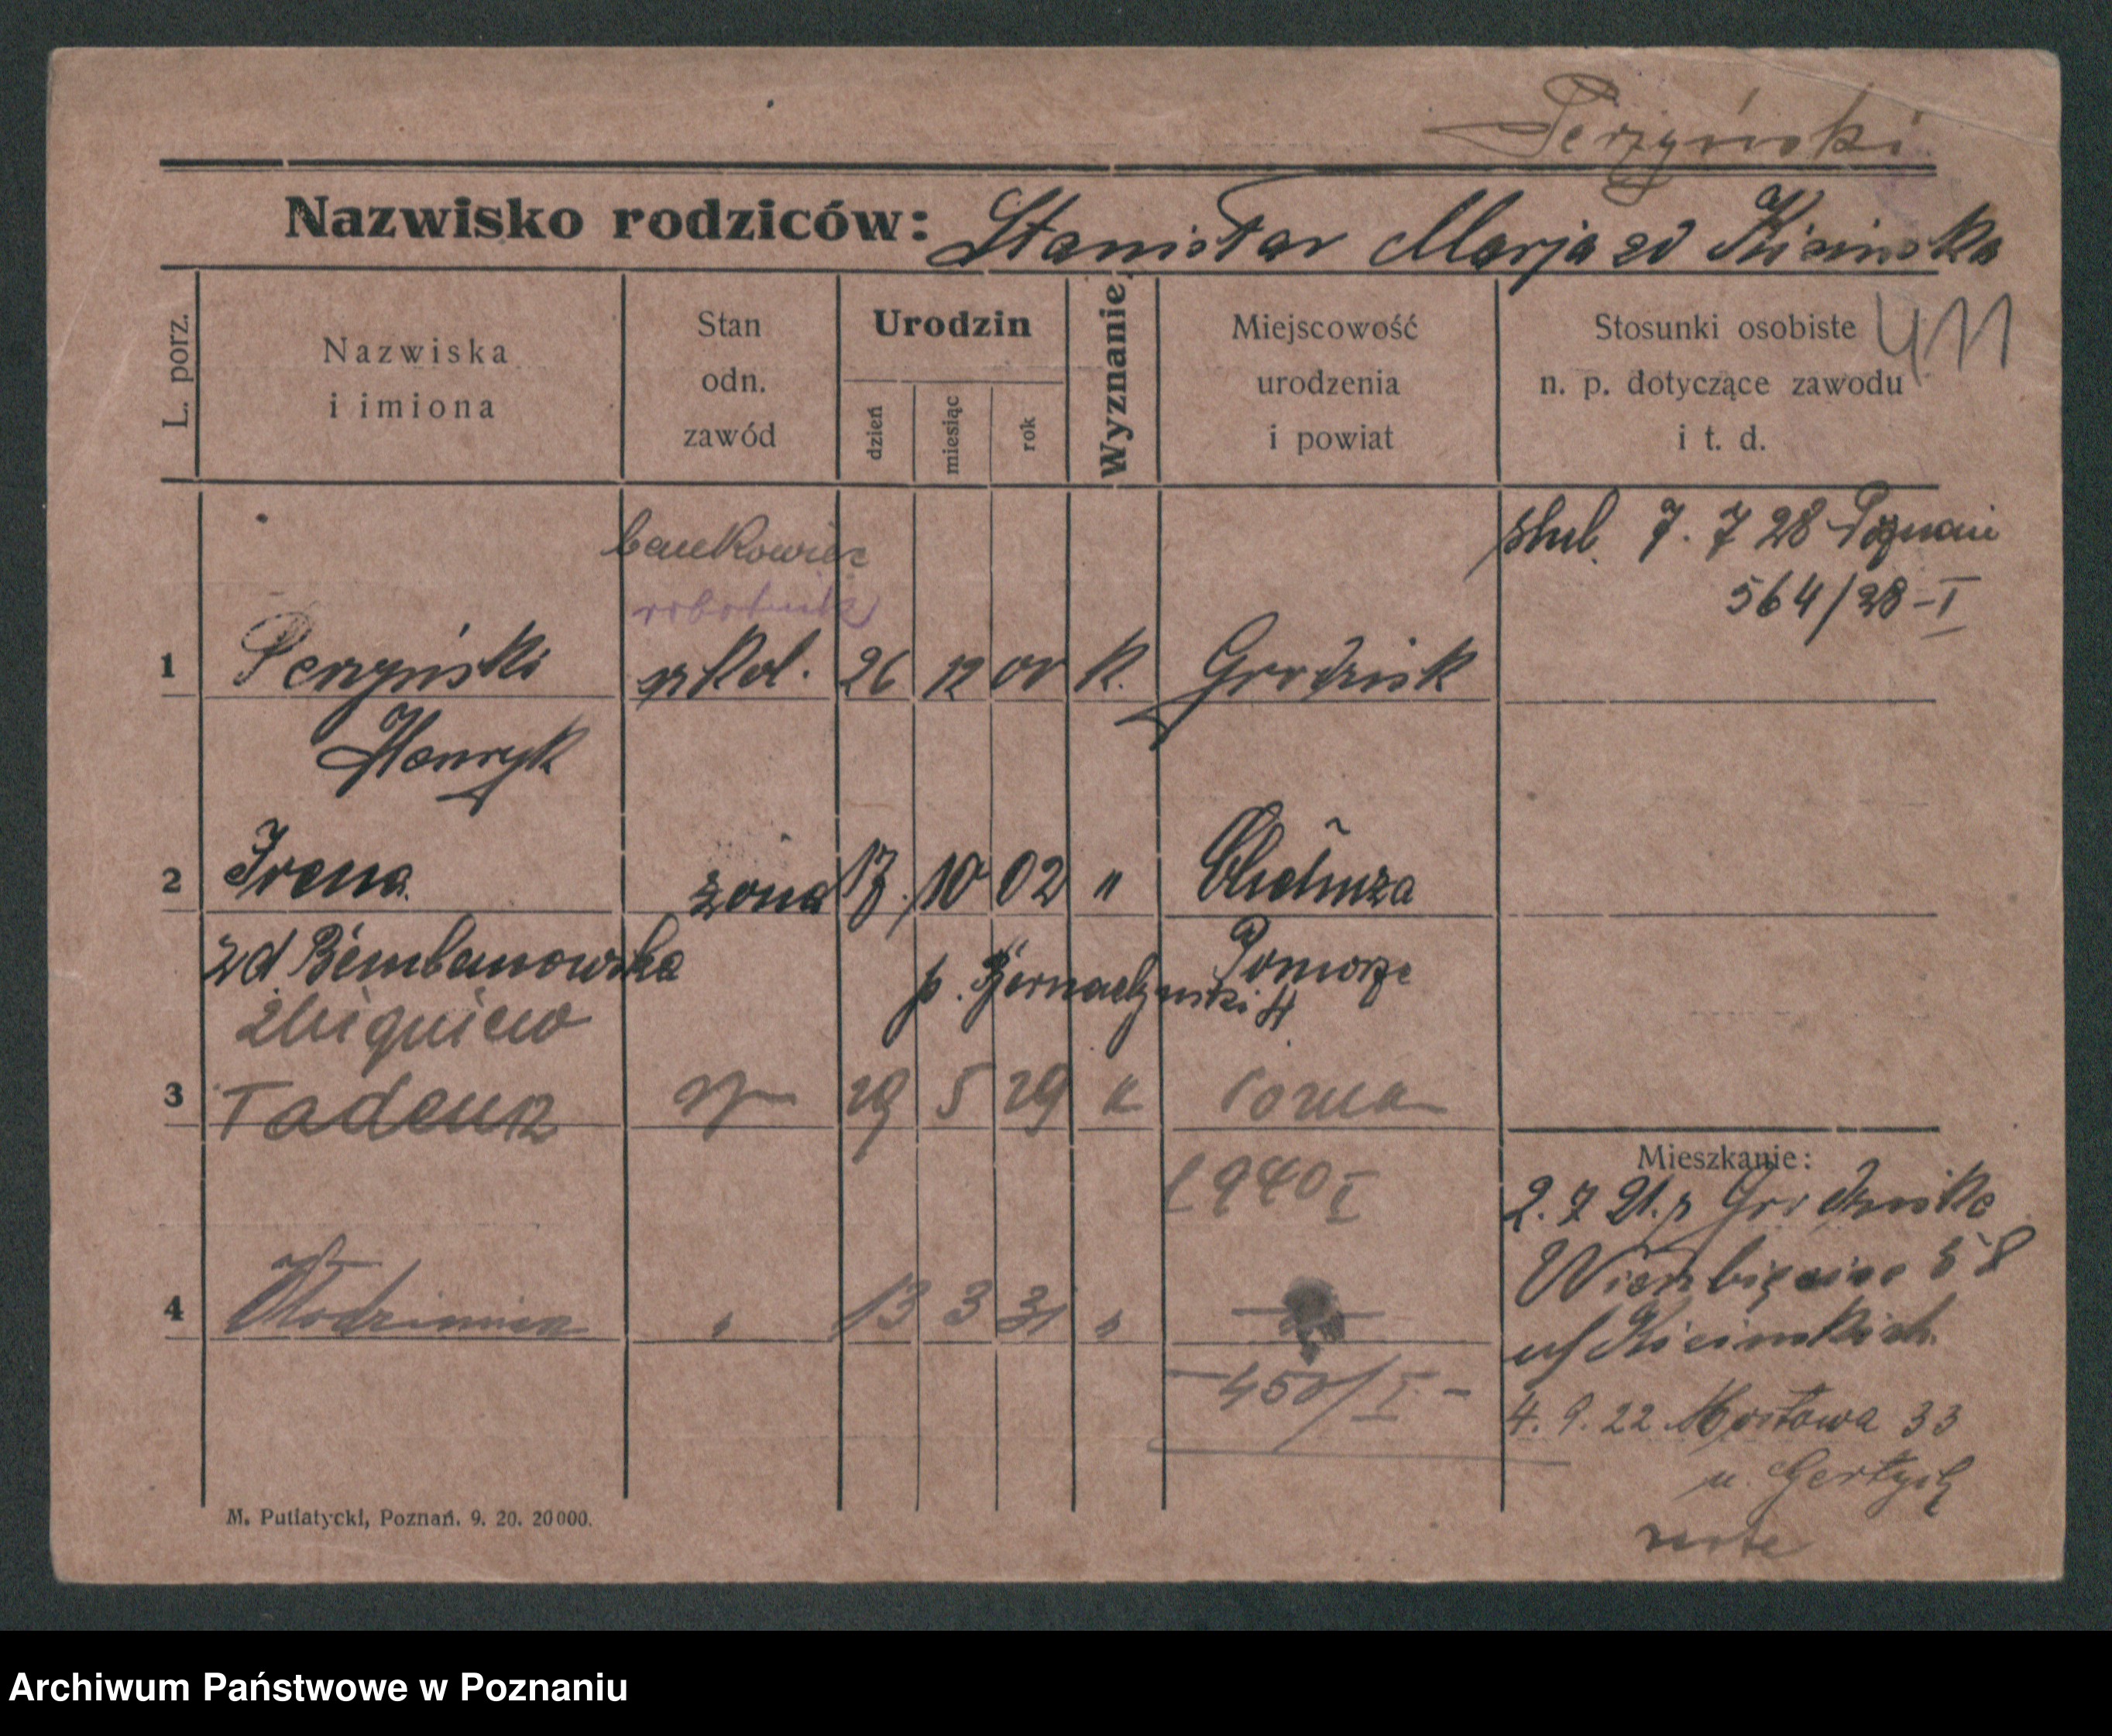 Perzyński
Nazwisko rodziców: Stanisław Marja zd Kicińska
411
L. porz.
Nazwiska
i imiona
Stan
odn.
zawód
Urodzin
dzień
miesiąc
rok
Wyznanie
Miejscowość
urodzenia
i powiat
Stosunki osobiste
n. p. dotyczące zawodu
i t. d.
bankowiec
robotnik
ślub. 7. 7 28 Poznań
564/28-I
1 Perzyński 26 12 00 k. Grodzisk
Henryk
2 Irena żona 17. 10 02 " Chełmża
zd Bembanowska Pomorze
Zbigniew
3 Tadeusz syn 29 5 29 "
1940 I
4 Włodzimierz " 13 3 31 "
450/I -
Mieszkanie:
2. 7 21. z Grodziska
Wierzbięcice 58
u/ Kicińskich
4. 9. 22 Mostowa 33
u.
M. Putiatycki, Poznań. 9. 20. 20000.
Archiwum Państwowe w Poznaniu